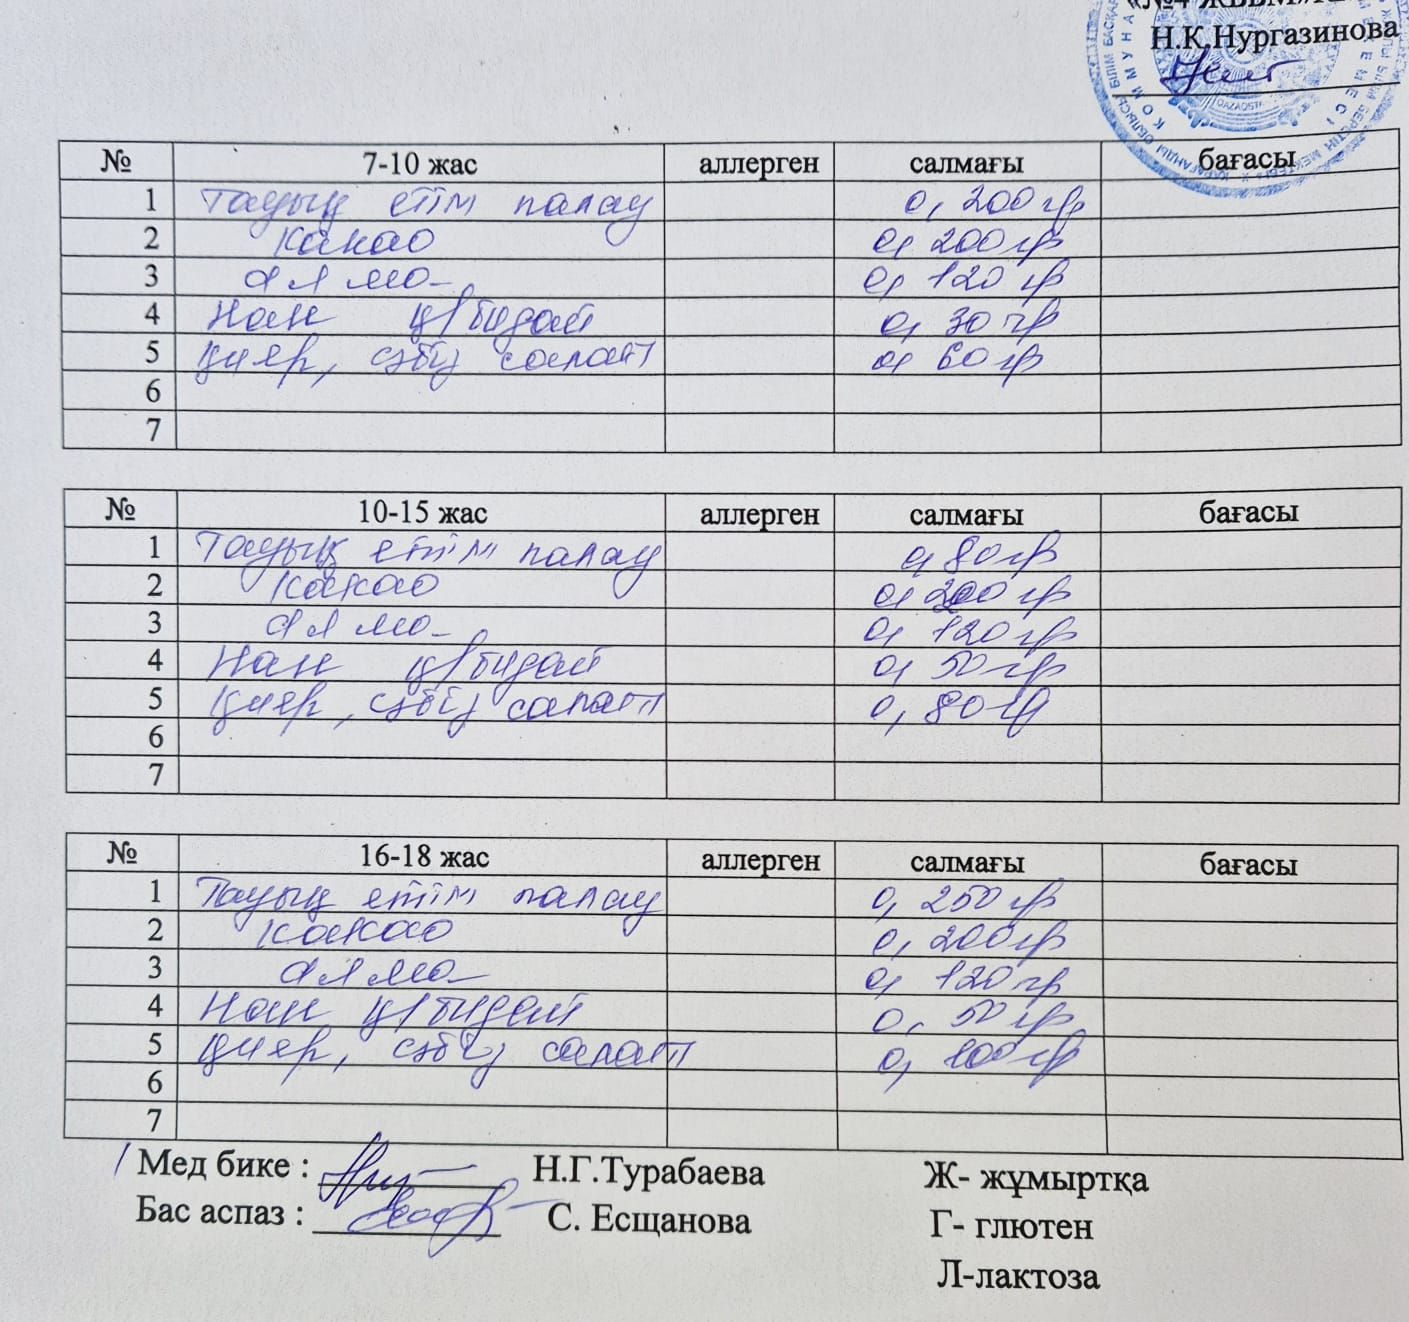 «№4 ЖББМ»
Н.К.Нургазинова
№ 7-10 жас аллерген салмағы бағасы
1 Тауық етім палау 0, 200 гр
2 Какао 0, 200 гр
3 алма 0, 120 гр
4 Нан қ/бидай 0, 30 гр
5 Қияр, сәбіз салат 0, 60 гр
6
7
№ 10-15 жас аллерген салмағы бағасы
1 Тауық етім палау 0, 80 гр
2 Какао 0, 200 гр
3 алма 0, 120 гр
4 Нан қ/бидай 0, 50 гр
5 Қияр, сәбіз салат 0, 80 гр
6
7
№ 16-18 жас аллерген салмағы бағасы
1 Тауық етім палау 0, 250 гр
2 какао 0, 200 гр
3 алма 0, 120 гр
4 Нан қ/бидай 0, 50 гр
5 Қияр, сәбіз салат 0, 100 гр
6
7
Мед бике : Н.Г.Турабаева Ж- жұмыртқа
Бас аспаз : С. Есщанова Г- глютен
Л-лактоза